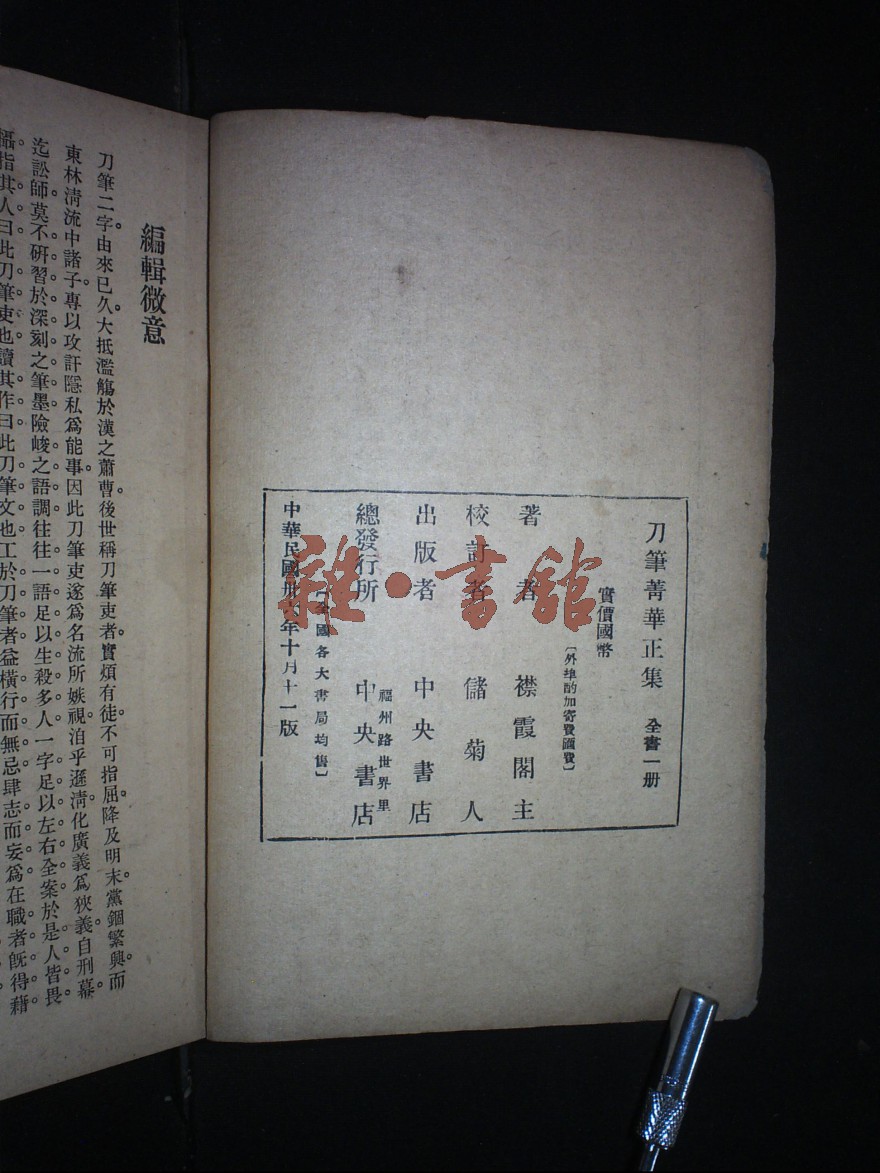 刀筆菁華正集 全書一册
實價國幣
〔外埠酌加寄費匯費〕
著者 襟霞閣主
校訂者 儲菊人
出版者 中央書店
福州路世界里
總發行所 中央書店
全國各大書局均售〕
中華民國卅六年十月十一版
雜·書館
編輯微意
刀筆二字由來已久。大抵濫觴於漢之蕭曹。後世稱刀筆吏者。實煩有徒。不可指屈。降及明末。黨錮繁興。而
東林清流中諸子。專以攻訐隱私爲能事。因此刀筆吏遂爲名流所嫉視。洎乎遜清。化廣義爲狹義。自刑幕。
迄訟師。莫不研習於深刻之筆墨。險峻之語調。往往一語足以生殺多人。一字足以左右全案。於是人皆畏
懾。指其人曰。此刀筆吏也。讀其作曰。此刀筆文也。工於刀筆者。益橫行而無忌。肆志而妄爲。在職者既得藉